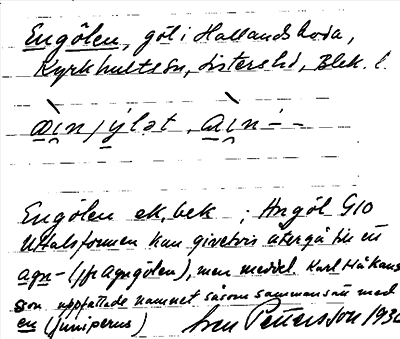 Engölen, göl i Hallandsboda,
Kyrkhults sn, Listers hd, Blek. l.
Engölen ek. bek ; Angöl G10
Uttalsformen kan givetvis återgå till ett
agn- (jfr Agngölen), men meddel. Karl Håkans
son uppfattade namnet såsom sammansatt med
en (juniperus) Sven Pettersson